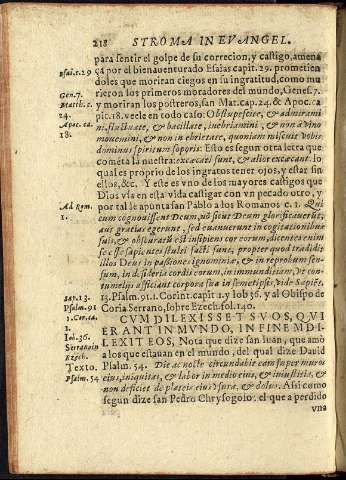 218 STROMA IN EVANGEL.
para sentir el golpe de su correcion, y castigo, amena
ça por el bienauenturado Esaias capit. 29. prometien
doles que moriran ciegos en su ingratitud, como mu
rieron los primeros moradores del mundo, Genes. 7.
y moriran los postreros, san Mat. cap. 24. & Apoc. ca
pit. 18. veelo en todo caso. Obstupescite, & admirami
ni, fluctuate, & vacillate, inebriamini, & non a vino
mouemini, & non in ebrietate, quoniam miscuit vobis
dominus spiritum soporis: Esto es segun otra letra que
cometa la nuestra: excæcati sunt, & alios excæcant. lo
qual es proprio de los ingratos tener ojos, y estar sin
ellos, &c. Y este es vno de los mayores castigos que
Dios vsa en esta vida castigar con vn pecado otro, y
por tal le apunta san Pablo a los Romanos c. 1. Qui
cum cognouissent Deum, nō sicut Deum glorificauerūt,
aut gratias egerunt, sed euanuerunt in cogitationibus
suis, & obscuratū est insipiens cor eorum, dicentes enim
se esse sapientes stulti facti sunt, propter quod tradidit
illos Deus in passiones ignominiæ, & in reprobum sen-
sum, in desideria cordis eorum, in immunditiam, vt con
tumelijs afficiant corpora sua in semetipsis, vide Sapiē.
13. Psalm. 91. 1. Corint. capit. 1. y Iob 36. y al Obispo de
Coria Serrano, sobre Ezech. fol. 140.
CVM DILEXISSET SVOS, QVI
ERANT IN MVNDO, IN FINEM DI-
LEXIT EOS, Nota que dize san Iuan, que amò
a los que estauan en el mundo, del qual dize Dauid
Psalm. 54. Die ac nocte circundabit eam super muros
eius, iniquitas, & labor in medio eius, & iniustitia, &
non deficiet de plateis eius vsura, & dolus. Assi como
segun dize san Pedro Chrysogolo: el que a perdido
vna
Esai. c. 29
Gen. 7.
Matth. c.
24.
Apoc. ca.
18.
Ad Rom.
1.
Sap. 13.
Psalm. 91
1. Cor. ca.
1.
Iob. 36.
Serrano in
Ezech.
Texto.
Psalm. 54